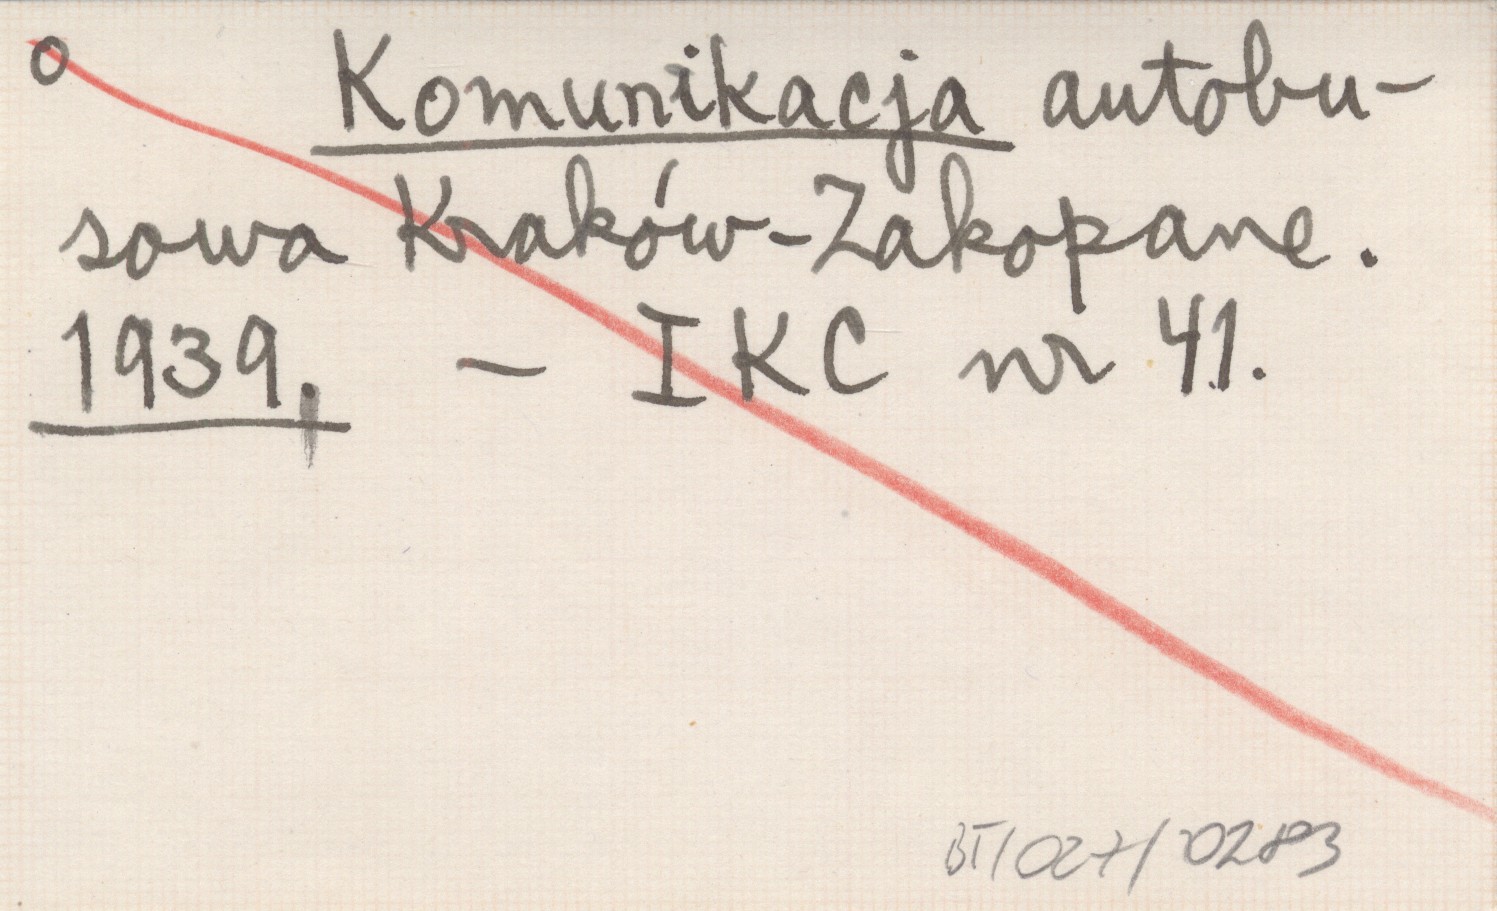 o Komunikacja autobu-
sowa Kraków-Zakopane.
1939. - IKC nr 41.
BT/027/0283